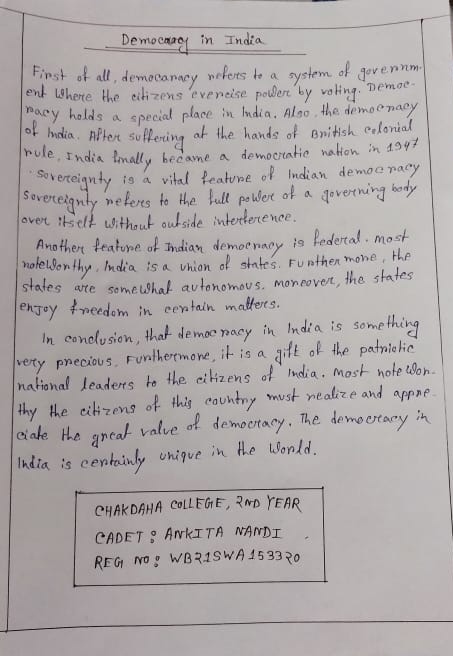 Democracy in India
First of all, democanacy refers to a system of governm-
ent where the citizens exercise power by voting. Democ-
racy holds a special place in India. Also, the democracy
of India. After suffering at the hands of British colonial
rule, India finally became a democratic nation in 1947
. Sovereignty is a vital feature of Indian democracy
Sovereignty refers to the full power of a governing body
over itself without outside interference.
Another feature of Indian democracy is federal. most
noteworthy, India is a union of states. Furthermore, the
states are somewhat autonomous. moreover, the states
enjoy freedom in certain matters.
In conclusion, that democracy in India is something
very precious. Furthermore, it is a gift of the patriotic
national leaders to the citizens of India. Most notewor-
thy the citizens of this country must realize and appre-
ciate the great value of democracy. The democracy in
India is certainly unique in the world.
CHAKDAHA COLLEGE, 2ND YEAR
CADET : ANKITA NANDI
REG NO : WB21SWA153320